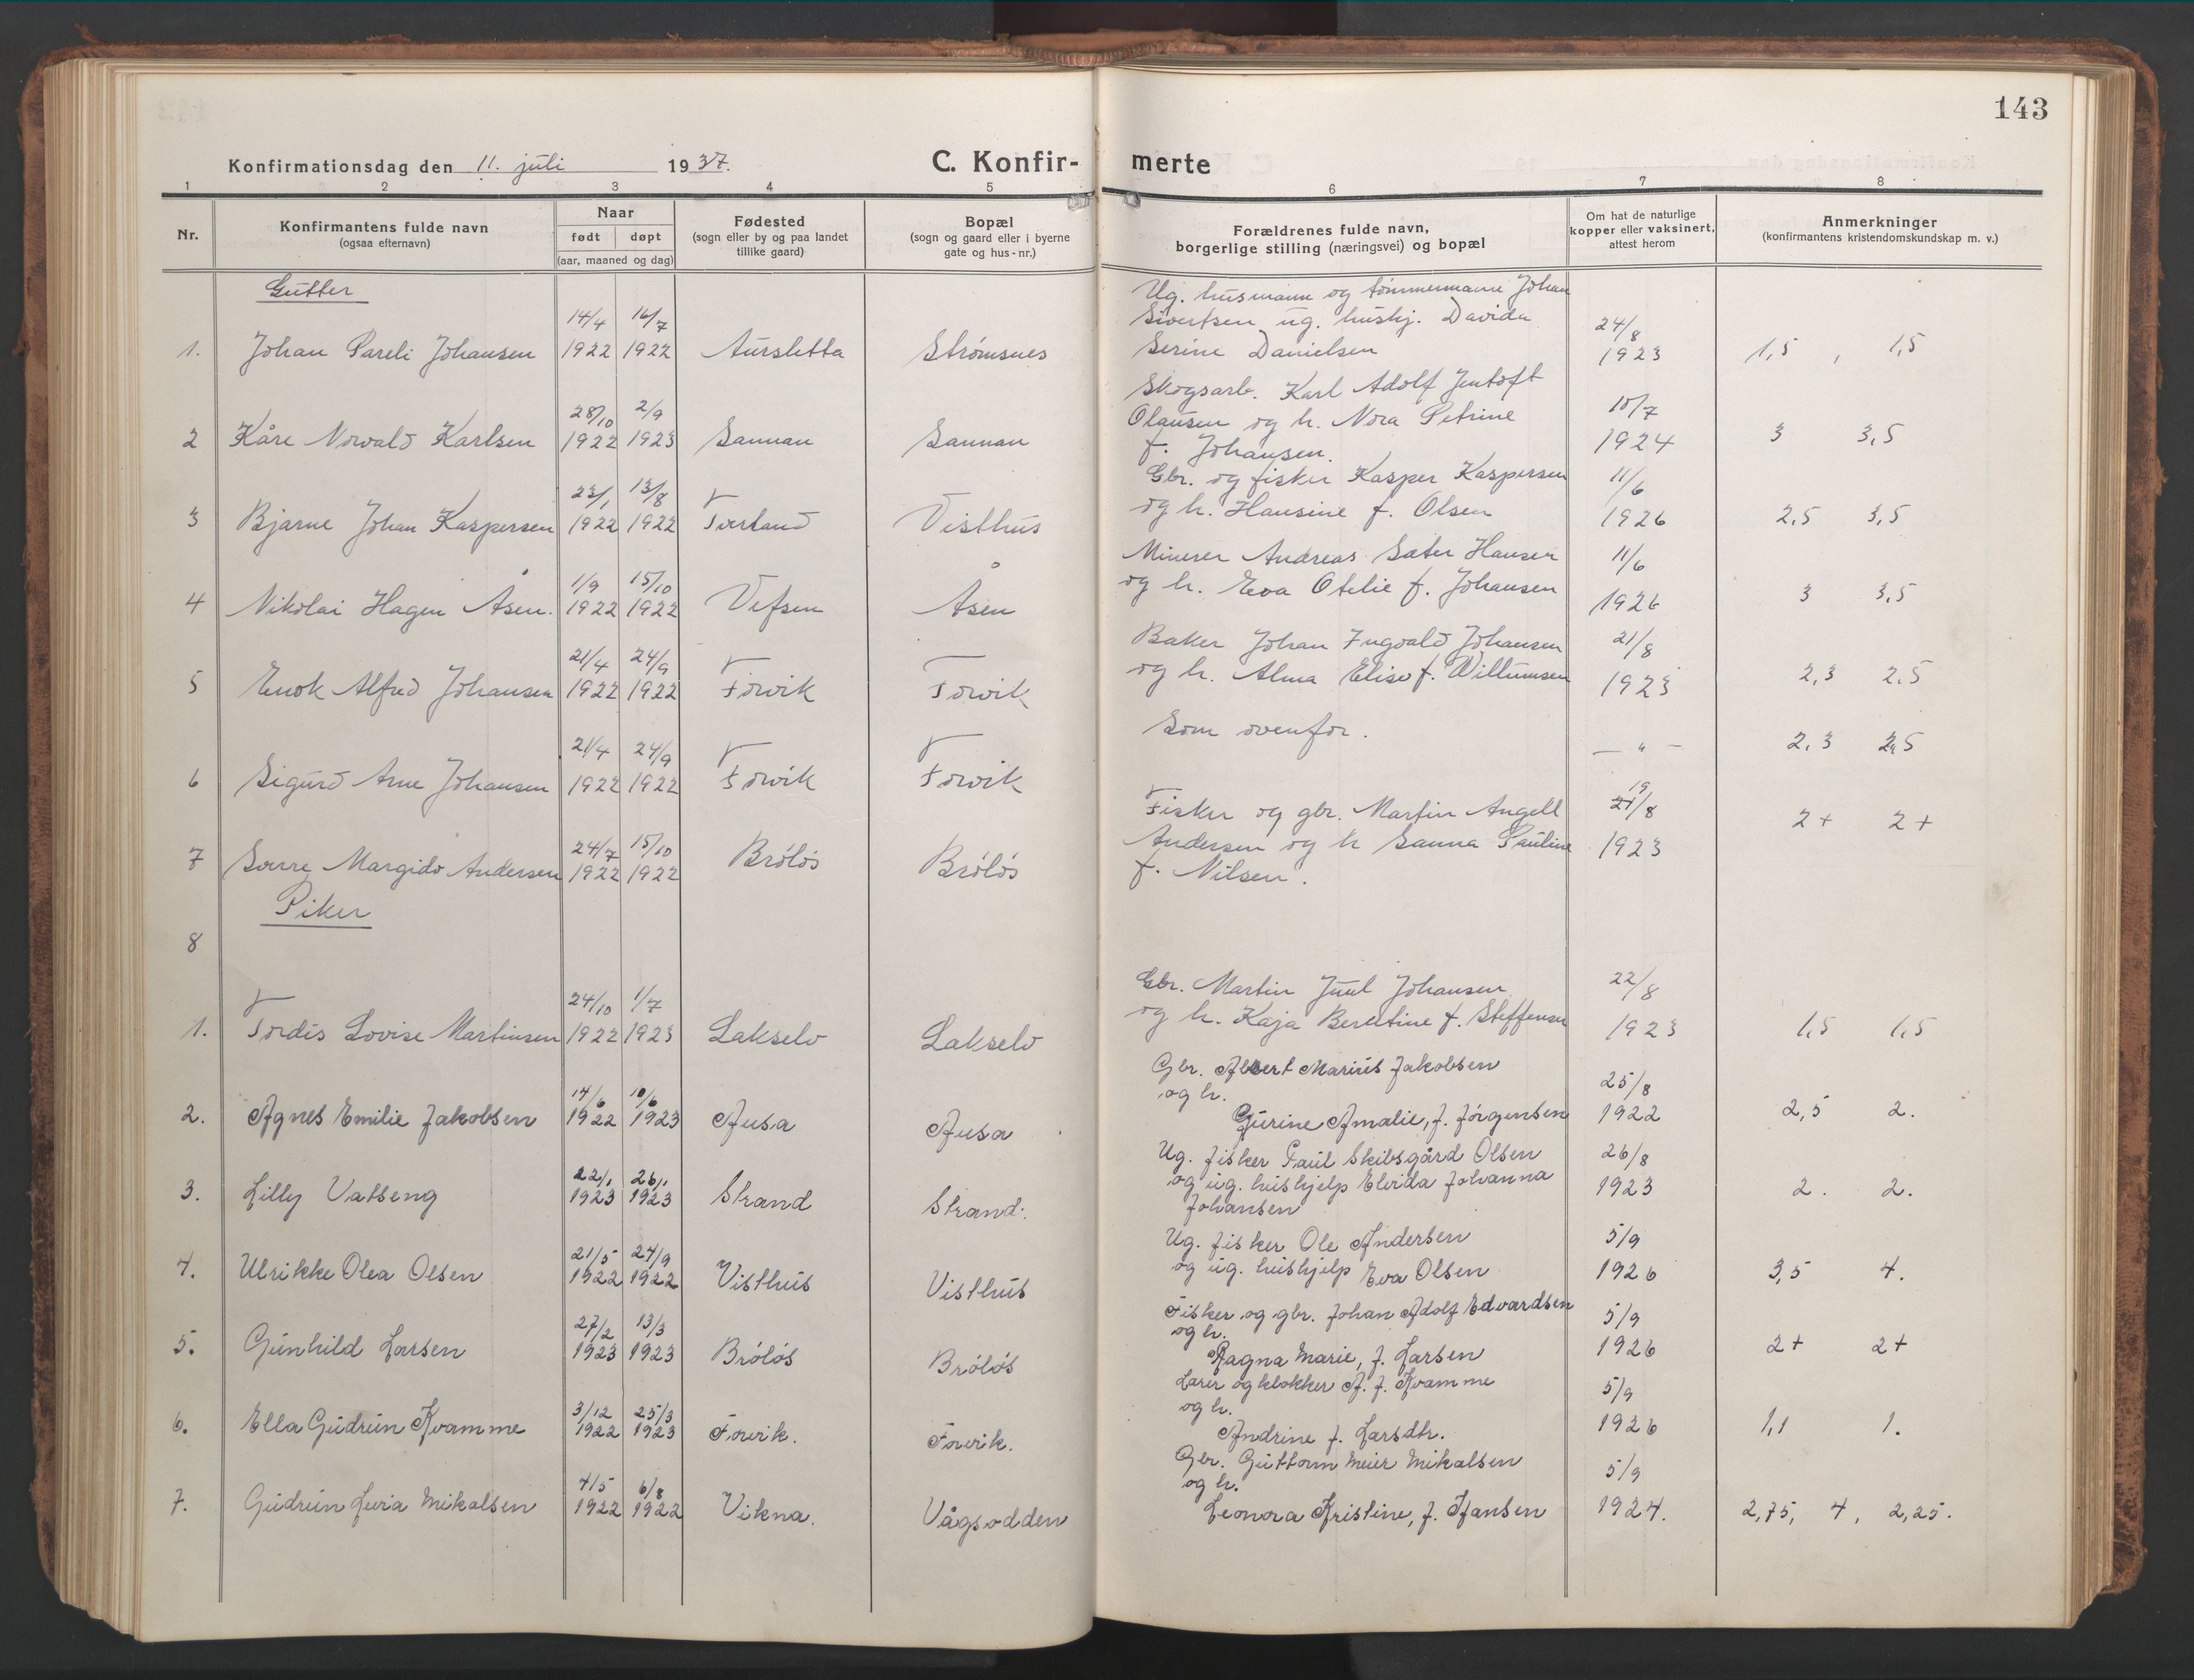 143
Konfirmationsdag den 11. juli 1937.
C. Konfir-
merte
1 2 3 4 5 6 7 8
Nr.
Konfirmantens fulde navn
(ogsaa efternavn)
Naar
født døpt
(aar, maaned og dag)
Fødested
(sogn eller by og paa landet
tillike gaard)
Bopæl
(sogn og gaard eller i byerne
gate og hus-nr.)
Forældrenes fulde navn,
borgerlige stilling (næringsvei) og bopæl
Om hat de naturlige
kopper eller vaksinert,
attest herom
Anmerkninger
(konfirmantens kristendomskundskap m. v.)
Gutter
14/4 16/7
1. Johan Pareli Johansen 1922 1922 Aursletta Strømsnes
Ug. husmann og tømmermann Johan
Sivertsen ug. hushj. Davida
Serine Danielsen
24/8
1923
1,5 , 1,5
28/10 2/9
2 Kåre Norvald Karlsen 1922 1923 Sannan Sannan
Skogsarb. Karl Adolf Jentoft
Olausen og h. Nora Petrine
f. Johansen.
10/7
1924
3 3,5
23/1 13/8
3 Bjarne Johan Kaspersen 1922 1922 Forland Visthus
Gbr. og fisker Kasper Kaspersen
og h. Hansine f. Olsen
11/6
1926
2,5 3,5
1/9 15/10
4 Nikolai Hagen Åsen. 1922 1922 Vefsen Åsen
Minerer Andreas Sæter Hansen
og h. Eva Otelie f. Johansen
11/6
1926
3 3,5
21/4 24/9
5 Enok Alfred Johansen 1922 1922 Forvik Forvik
Baker Johan Ingvald Johansen
og h. Alma Elise f. Willumsen
21/8
1923
2,3 2,5
21/4 24/9
6 Sigurd Arne Johansen 1922 1922 Forvik Forvik
Som ovenfor.
— " —
2,3 2,5
24/7 15/10
7 Sverre Margido Andersen 1922 1922 Brøløs Brøløs
Fisker og gbr. Martin Angell
Andersen og h Sanna Pauline
f. Nilsen.
19
21/8
1923
2+ 2+
Piker
8
24/10 1/7
1. Tordis Lovise Martinsen 1922 1923 Lakselv Lakselv
Gbr. Martin Juul Johansen
og h. Kaja Berntine f. Steffensen
22/8
1923
1,5 1,5
14/6 10/6
2. Agnes Emilie Jakobsen 1922 1923 Ausa Ausa
Gbr. Albert Marius Jakobsen
og h.
Gurine Amalie, f. Jörgensen
25/8
1922
2,5 2.
22/1 26/1
3. Lilly Vatseng 1923 1923 Strand Strand.
Ug. fisker Paul Skibsgård Olsen
og ug. hushjelp Elvida Johanna
Johansen
26/8
1923
2. 2.
21/5 24/9
4. Ulrikke Olea Olsen 1922 1922 Visthus Visthus
Ug. fisker Ole Andersen
og ug. hushjelp Eva Olsen
5/9
1926
3,5 4.
27/2 13/3
5. Gunhild Larsen 1923 1923 Bröløs Bröløs
Fisker og gbr. Johan Adolf Edvardsen
og h.
Ragna Marie, f. Larsen
5/9
1926
2+ 2+
3/12 25/3
6. Ella Gudrun Kvamme 1922 1923 Forvik. Forvik.
Lærer og klokker A. J. Kvamme
og h.
Andrine f. Larsdtr.
5/9
1926
1,1 1.
4/5 6/8
7. Gudrun Luria Mikalsen 1922 1922 Vikna. Vågsodden
Gbr. Guttorm Meier Mikalsen
og h.
Leonora Kristine, f. Hansen
5/9
1924.
2,75, 4, 2,25.